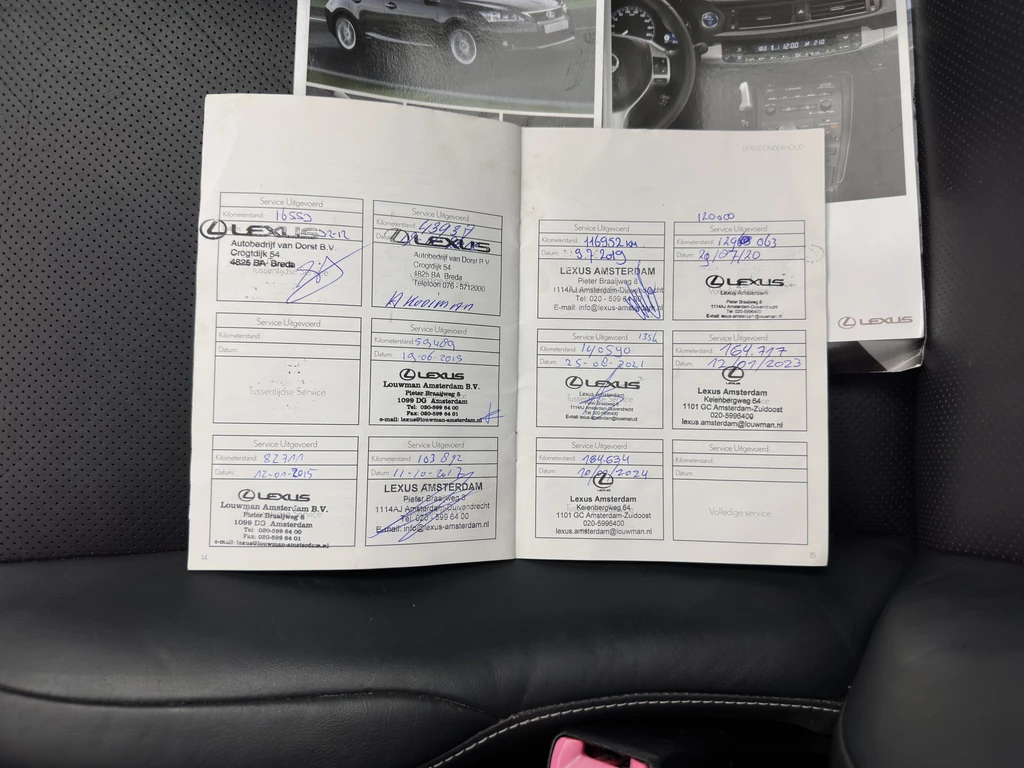 LEXUS ONDERHOUD
Service Uitgevoerd
Kilometerstand: 16553
LEXUS
Autobedrijf van Dorst B.V.
Crogtdijk 54
4825 BA Breda
Tussentijdse
Service Uitgevoerd
Kilometerstand: 43937
LEXUS
Autobedrijf van Dorst B.V.
Crogtdijk 54
4825 BA Breda
Telefoon 076 - 5712000
Service Uitgevoerd
Kilometerstand:
Datum:
Tussentijdse Service
Service Uitgevoerd
Kilometerstand: 59489
Datum: 19-06-2015
LEXUS
Louwman Amsterdam B.V.
Pieter Braaijweg 8
1099 DG Amsterdam
Tel: 020-599 64 00
Fax: 020-599 64 01
e-mail: lexus@louwman-amsterdam.nl
Service Uitgevoerd
Kilometerstand: 82711
Datum:
LEXUS
Louwman Amsterdam B.V.
Pieter Braaijweg 8
1099 DG Amsterdam
Tel: 020-599 64 00
Fax: 020-599 64 01
e-mail: lexus@louwman-amsterdam.nl
Service Uitgevoerd
Kilometerstand: 103 892
Datum: 11-10-2017
LEXUS AMSTERDAM
Pieter Braaijweg 8
1114AJ Amsterdam-Duivendrecht
Tel: 020 -599 64 00
E-mail: info@lexus-amsterdam.nl
14
Service Uitgevoerd
Kilometerstand: 116952 km
Datum: 9.7.2019
LEXUS AMSTERDAM
Pieter Braaijweg 8
1114AJ Amsterdam-Duivendrecht
Tel: 020 - 599 64 00
E-mail: info@lexus-amsterdam.nl
120000
Service Uitgevoerd
Kilometerstand: 129 063
Datum: 29/07/20
LEXUS
Lexus Amsterdam
Pieter Braaijweg 8
1114AJ Amsterdam-Duivendrecht
Tel: 020-5996400
Service Uitgevoerd 135k
Kilometerstand: 140540
Datum: 25-08-2021
LEXUS
Service Uitgevoerd
Kilometerstand: 164.717
Datum: 12/01/2023
Lexus Amsterdam
Keienbergweg 64
1101 GC Amsterdam-Zuidoost
020-5996400
lexus.amsterdam@louwman.nl
Service Uitgevoerd
Kilometerstand: 184634
Datum: 10/02/2024
Lexus Amsterdam
Keienbergweg 64
1101 GC Amsterdam-Zuidoost
020-5996400
lexus.amsterdam@louwman.nl
Service Uitgevoerd
Kilometerstand:
Datum:
Volledige service
15
LEXUS